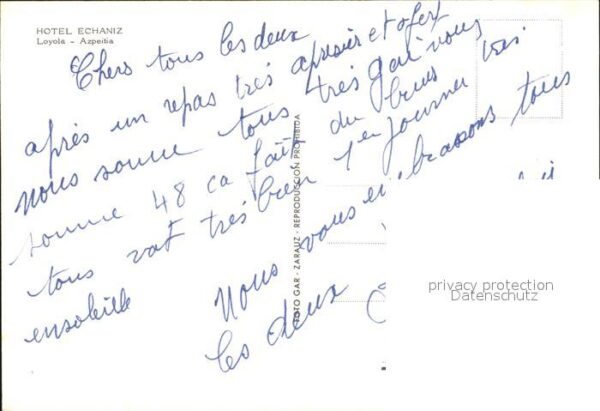 HOTEL ECHANIZ
Loyola - Azpeitia
Chers tous les deux
après un repas très et
nous somme tous très gai vous
somme 48 ca fait du bruis
tous vat très bien 1er journer très
ensoleille Nous vous embrassons tous
les deux
FOTO GAR - ZARAUZ - REPRODUCCIÓN PROHIBIDA
privacy protection
Datenschutz